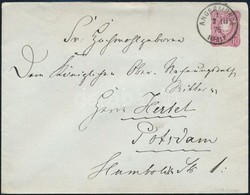 Sr. Hochwohlgeboren
Dem Königlichen Ober-
Ritter
Herrn Hertel
Potsdam
Humboldt Str. 1.